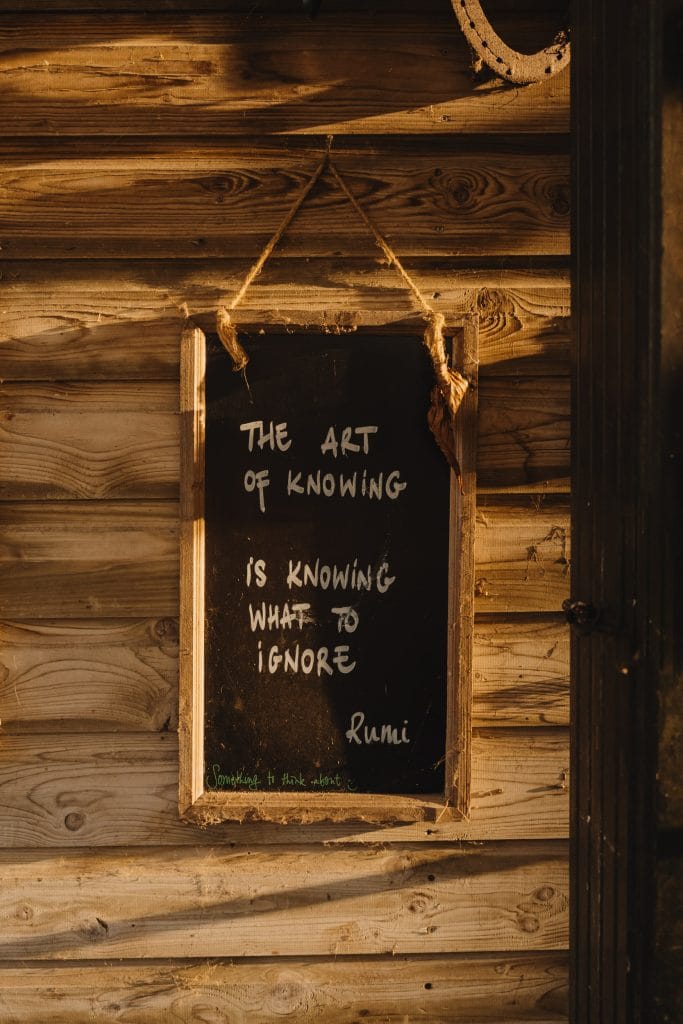 THE ART
OF KNOWING
iS KNOWING
WHAT TO
iGNORE
Rumi
Something to think about :)